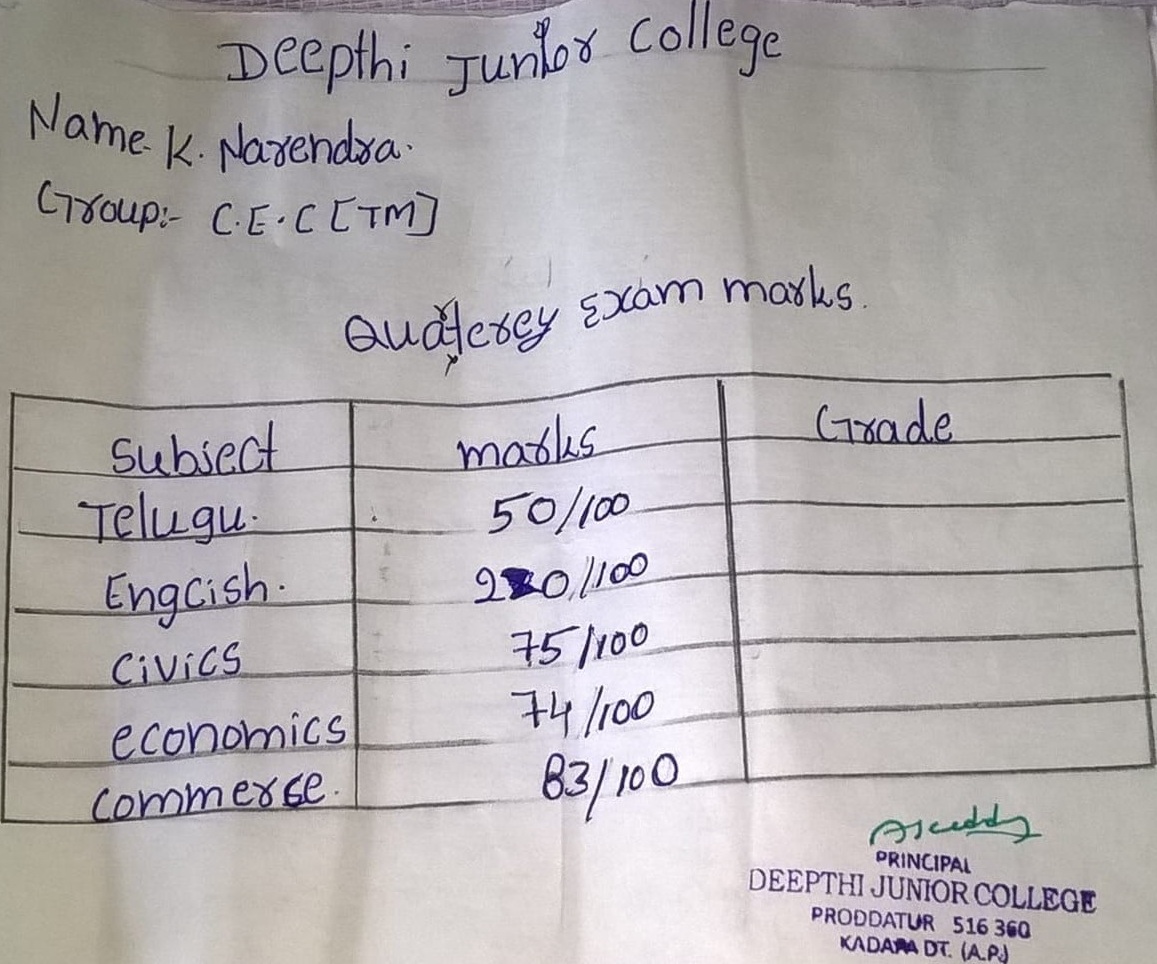 Deepthi Junior College
Name- K. Narendra.
Group:- C.E.C [TM]
Quarterey Exam marks.
Subject marks Grade
Telugu. 50/100
Engcish. /100
Civics 75/100
economics 74/100
commerce. 83/100
PRINCIPAL
DEEPTHI JUNIOR COLLEGE
PRODDATUR 516 360
KADAPA DT. (A.P.)